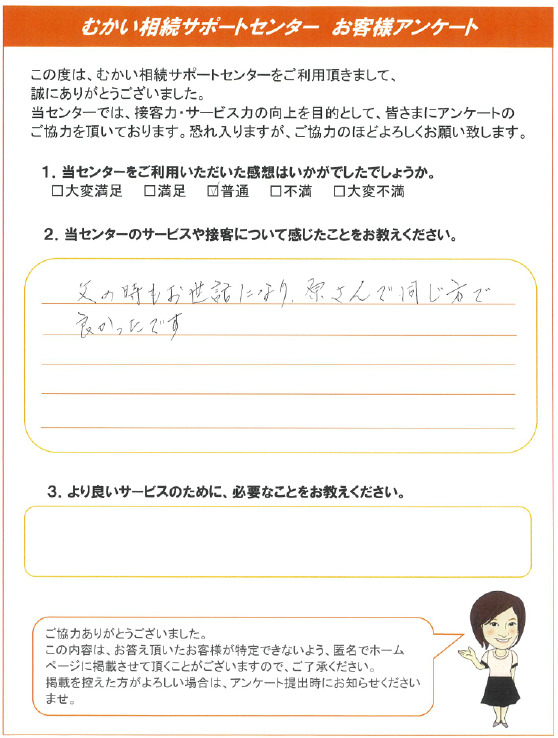 むかい相続サポートセンター　お客様アンケート
この度は、むかい相続サポートセンターをご利用頂きまして、
誠にありがとうございました。
当センターでは、接客力・サービス力の向上を目的として、皆さまにアンケートの
ご協力を頂いております。恐れ入りますが、ご協力のほどよろしくお願い致します。
１．当センターをご利用いただいた感想はいかがでしたでしょうか。
□大変満足　□満足　☑普通　□不満　□大変不満
２．当センターのサービスや接客について感じたことをお教えください。
父の時もお世話になり、原さんで同じ方で
良かったです
３．より良いサービスのために、必要なことをお教えください。
ご協力ありがとうございました。
この内容は、お答え頂いたお客様が特定できないよう、匿名でホーム
ページに掲載させて頂くことがございますので、ご了承ください。
掲載を控えた方がよろしい場合は、アンケート提出時にお知らせください
ませ。